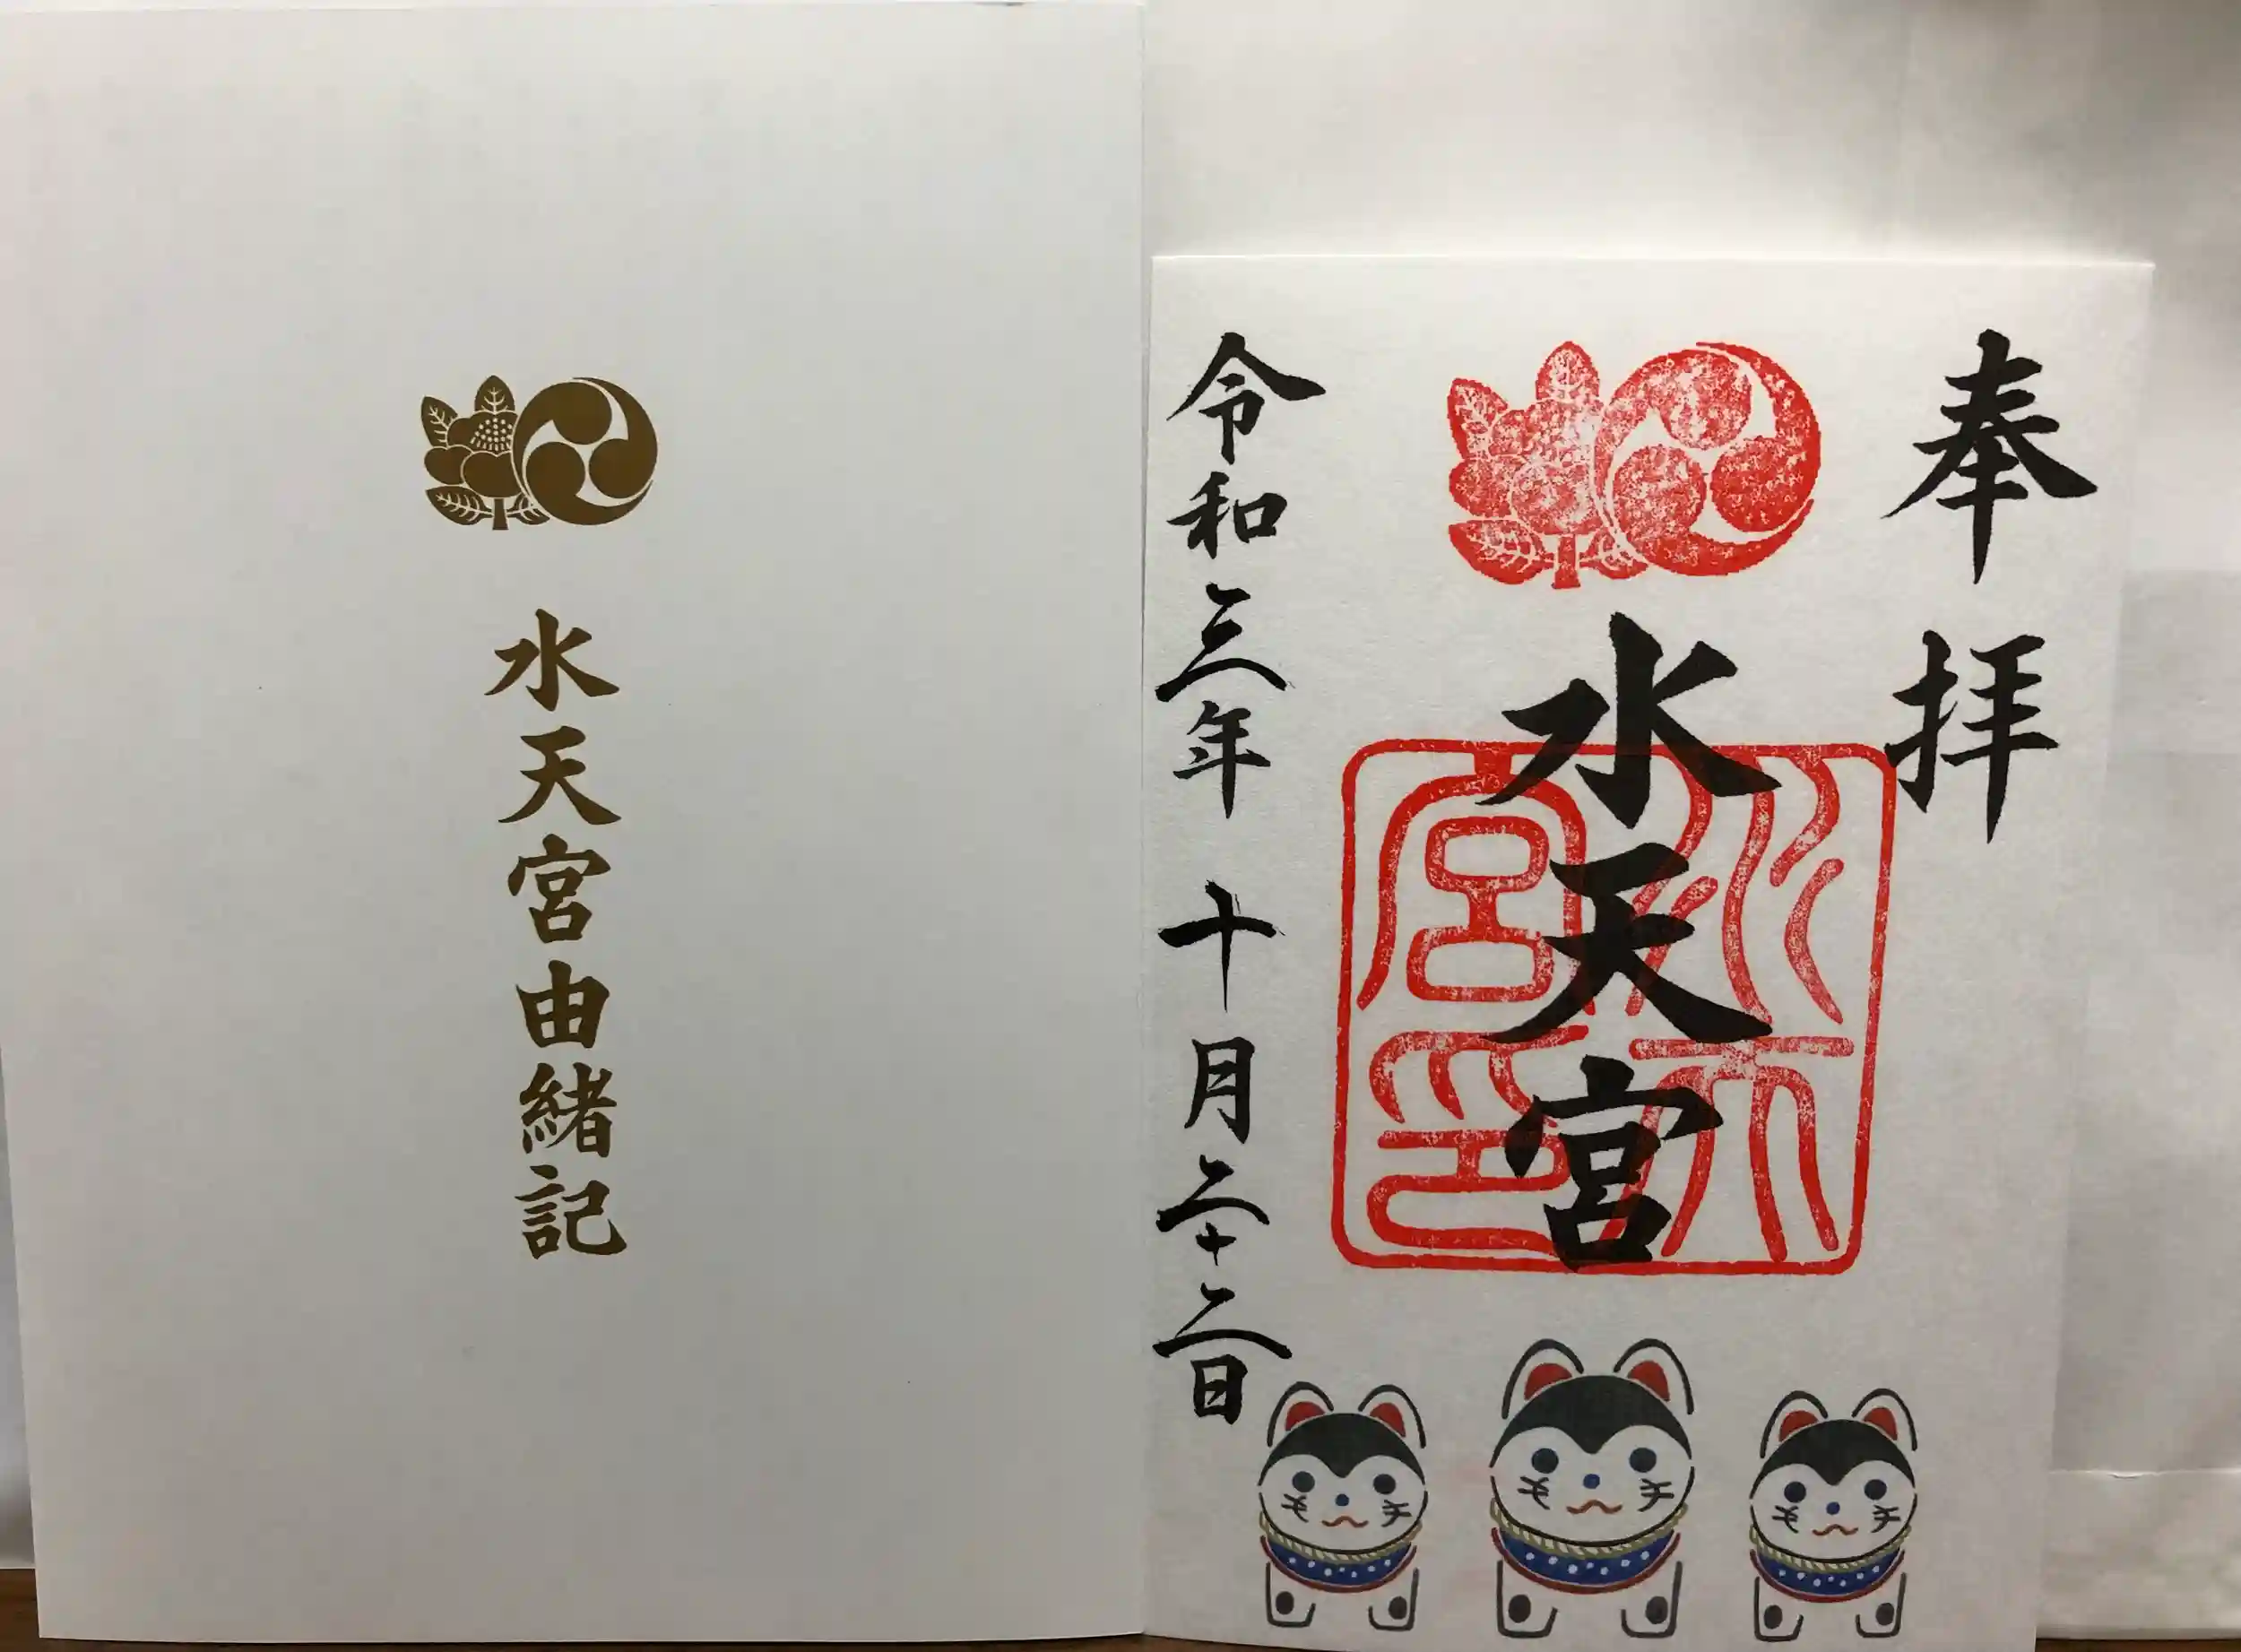 奉拝
水天宮
水天
宮印
令和三年 十月二十二日
水天宮由緒記